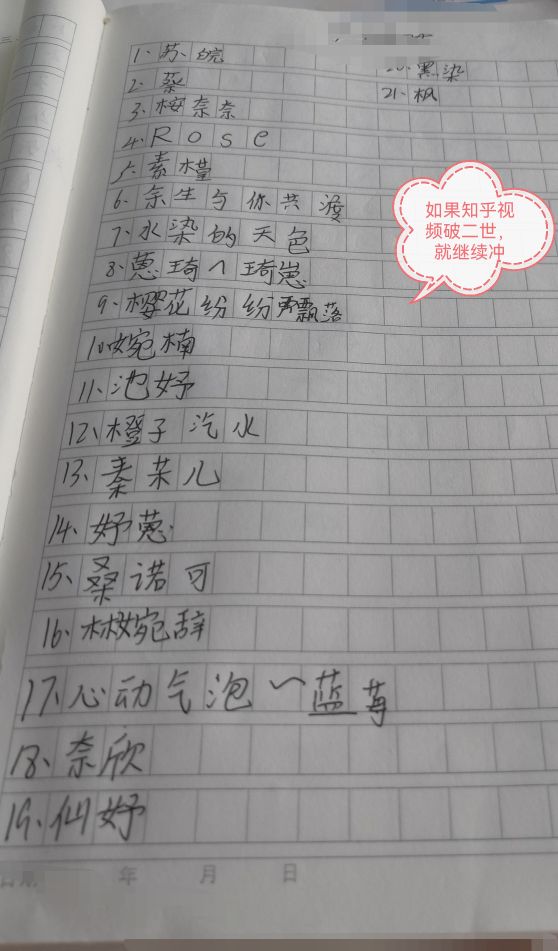 1、苏皖
2、蔡
3、桉奈奈
4、Rose
5、素槿
6、余生与你共渡
7、水染的天色
8、蒽琦へ琦崽
9、樱花纷纷飘落
10、晼楠
11、池妤
12、橙子汽水
13、秦茉儿
14、妤蒽
15、桑诺可
16、林婉辞
17、心动气泡～蓝莓
18、奈欣
19、仙妤
20、黑染
21、枫
如果知乎视
频破二世，
就继续冲
年 月 日